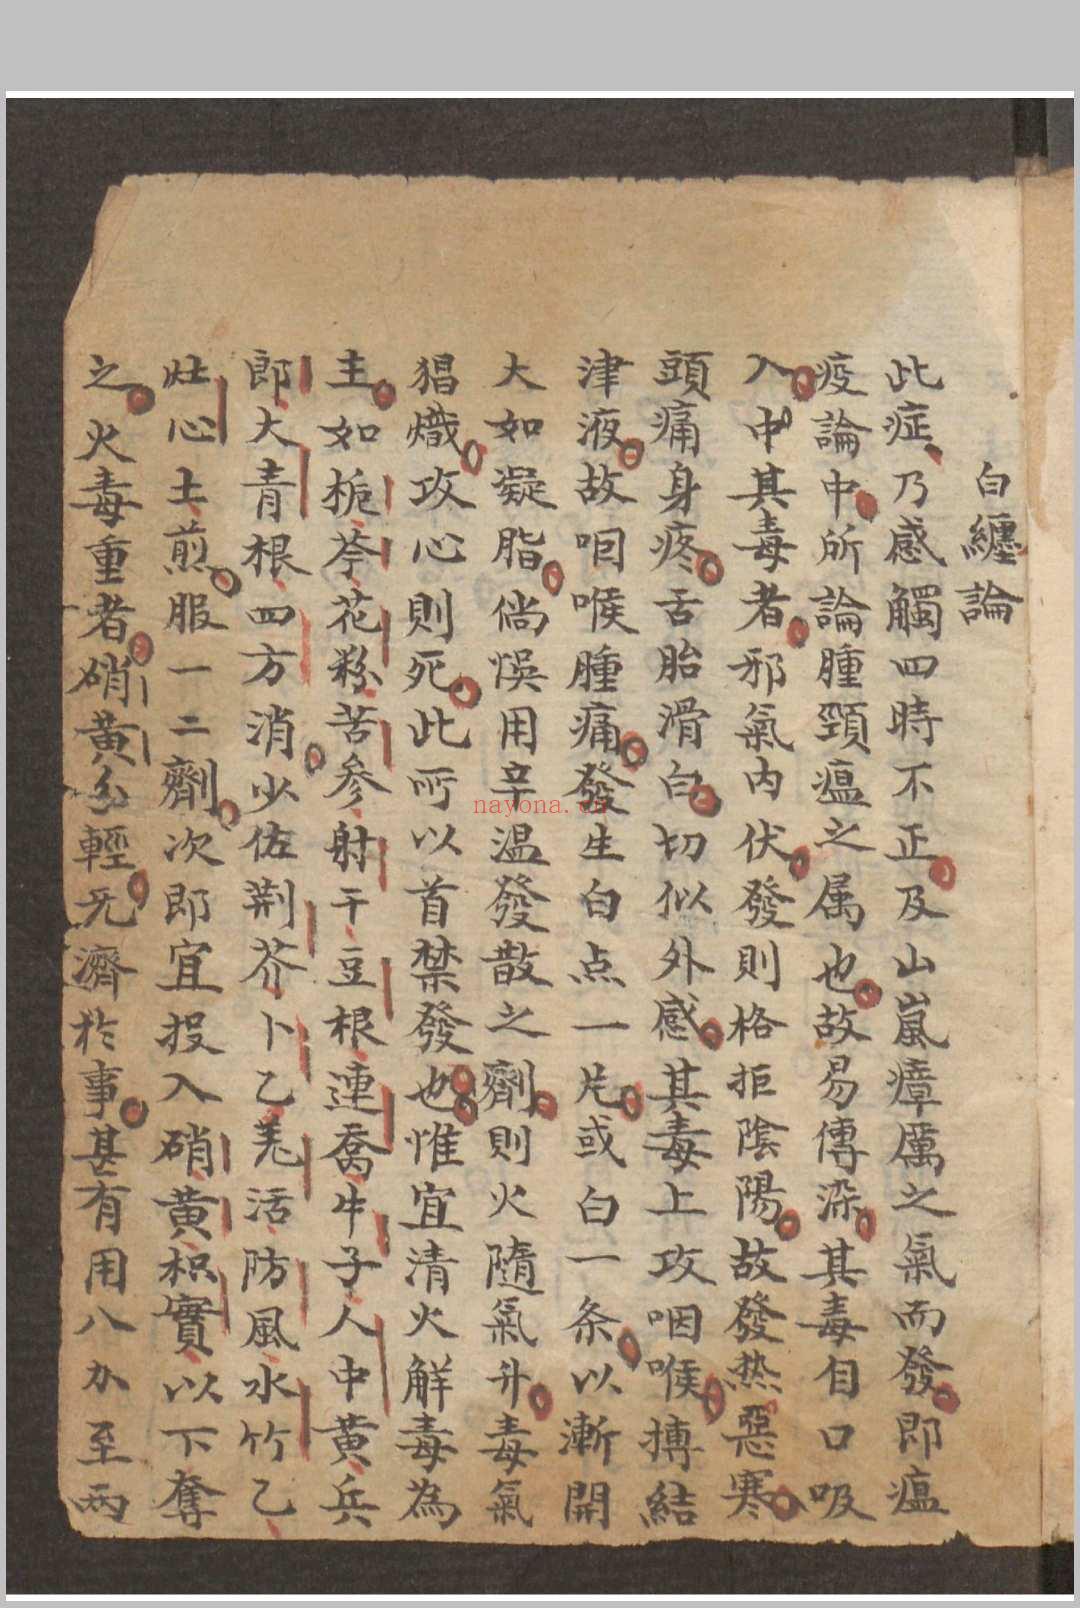 白纏論
此症乃感觸四時不正及山嵐瘴厲之氣而發即瘟
疫論中所論腫頸瘟之属也故易傳染其毒自口吸
入中其毒者邪氣內伏發則格拒陰陽故發热惡寒
頭痛身疼舌胎滑白切似外感其毒上攻咽喉搏結
津液故咽喉腫痛發生白点一片或白一条以漸開
大如凝脂倘悞用辛温發散之劑則火隨氣升毒氣
猖熾攻心則死此所以首禁發也惟宜清火解毒為
主如栀芩花粉苦参射干豆根連喬牛子人中黄兵
郎大青根四方消少佐荆芥卜乙羌活防風水竹乙
灶心土煎服一二劑次即宜投入硝黄枳實以下奪
之火毒重者硝黄分輕无濟於事甚有用八分至兩
nayona.cn